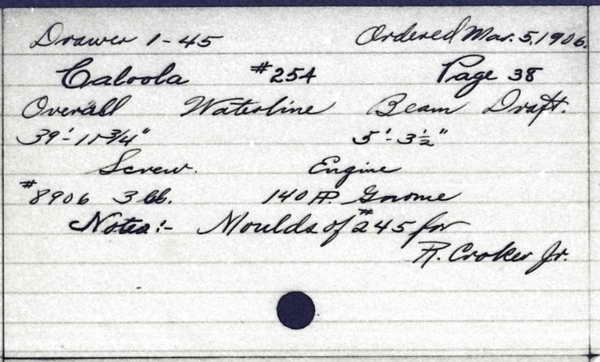 Drawer 1-45 Ordered Mar. 5, 1906.
Caloola #254 Page 38
Overall Waterline Beam Draft.
39'-11 3/4" 5'-3 1/2"
Screw. Engine
#8906 3 bb. 140 HP. Gnome
Notes:- Moulds of #245 for
R. Croker Jr.